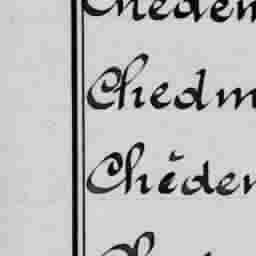 Chedem
Chedm
Chèdem